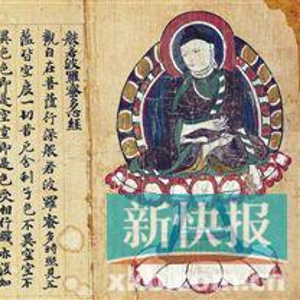 般若波羅蜜多心經
觀自在菩薩行深般若波羅蜜多時照見五
蘊皆空度一切苦厄舍利子色不異空空不
異色色即是空空即是色受相行識亦復如
新快报